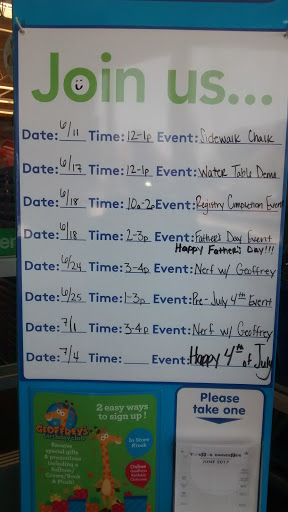 Join us...
Date: 6/11 Time: 12-1p Event: Sidewalk Chalk
Date: 6/17 Time: 12-1p Event: Water Table Demo
Date: 6/18 Time: 10a-2p Event: Registry Completion Event
Date: 6/18 Time: 2-3p Event: Father's Day Event
Happy Father's Day!!!
Date: 6/24 Time: 3-4p Event: Nerf w/ Geoffrey
Date: 6/25 Time: 1-3p Event: Pre-July 4th Event
Date: 7/1 Time: 3-4p Event: Nerf w/ Geoffrey
Date: 7/4 Time: Event: Happy 4th of July
GEOFFREY'S
birthday club
2 easy ways
to sign up!
In Store
Kiosk
Online
Receive
special gifts
& promotions
including a
Balloon,
Crown/Book
& More!
Please
take one
JUNE 2017